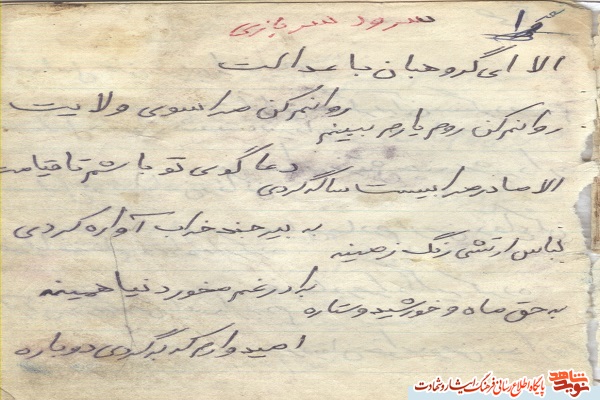 ۱۰
سرود سربازی
الا ای گروهبان با عدالت
روانم کن مرا سوی ولایت
روانم کن روم یارم ببینم
دعا گوی تو باشم تا قیامت
الا مادر مرا بیست ساله کردی
به بیرجند خراب آواره کردی
لباس ارتشی رنگ زمینه
برادر غم مخور دنیا همینه
به حق ماه و خورشید و ستاره
امیدوارم که برگردی دوباره
نوید شاهد
پایگاه اطلاع رسانی فرهنگ ایثار و شهادت